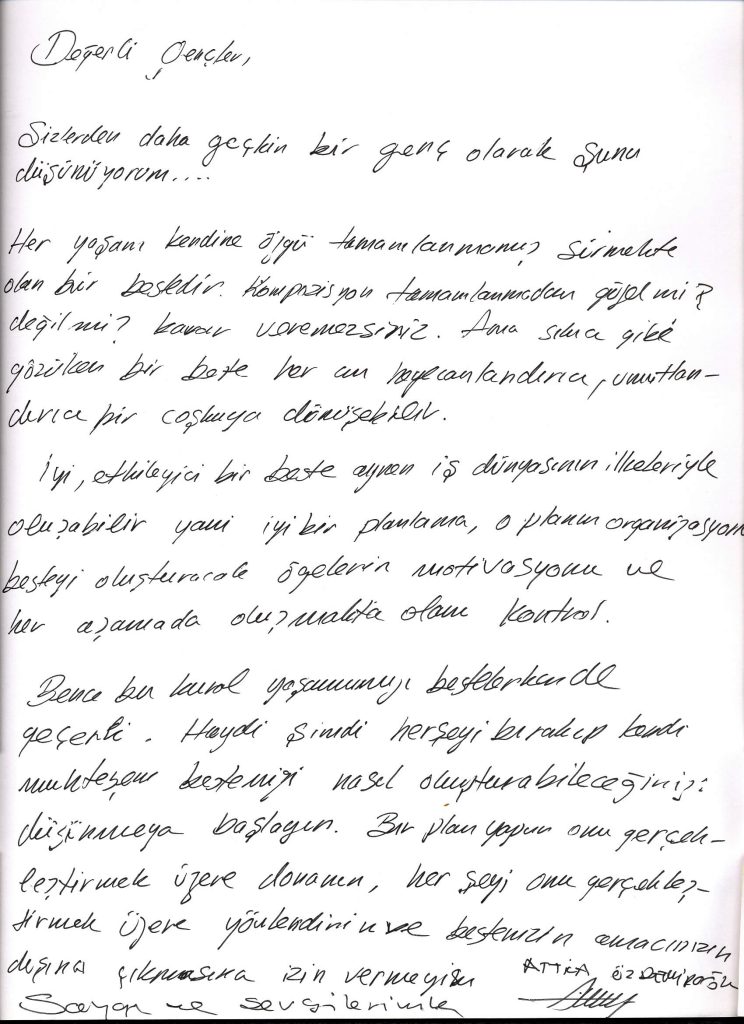 Değerli Gençler,
Sizlerden daha geçkin bir genç olarak şunu
düşünüyorum....
Her yaşam kendine özgü tamamlanmamış sürmekte
olan bir bestedir. Kompozisyon tamamlanmadan güzel mi?
değil mi? karar veremezsiniz. Ama sıkıcı gibi
gözüken bir beste her an heyecanlandırıcı, umutlan-
dırıcı bir coşkuya dönüşebilir.
İyi, etkileyici bir beste aynen iş dünyasının ilkeleriyle
oluşabilir yani iyi bir planlama, o planın organizasyonu
besteyi oluşturacak ögelerin motivasyonu ve
her aşamada oluşmakta olanı kontrol.
Bence bu kural yaşamımızı bestelerken de
geçerli. Haydi şimdi herşeyi bırakıp kendi
muhteşem bestenizi nasıl oluşturabileceğinizi
düşünmeye başlayın. Bir plan yapın onu gerçek-
leştirmek üzere donanın, her şeyi onu gerçekleş-
tirmek üzere yönlendirin ve bestenizin amacınızın
dışına çıkmasına izin vermeyin
ATTİLA ÖZDEMİROĞLU
Saygı ve sevgilerimle